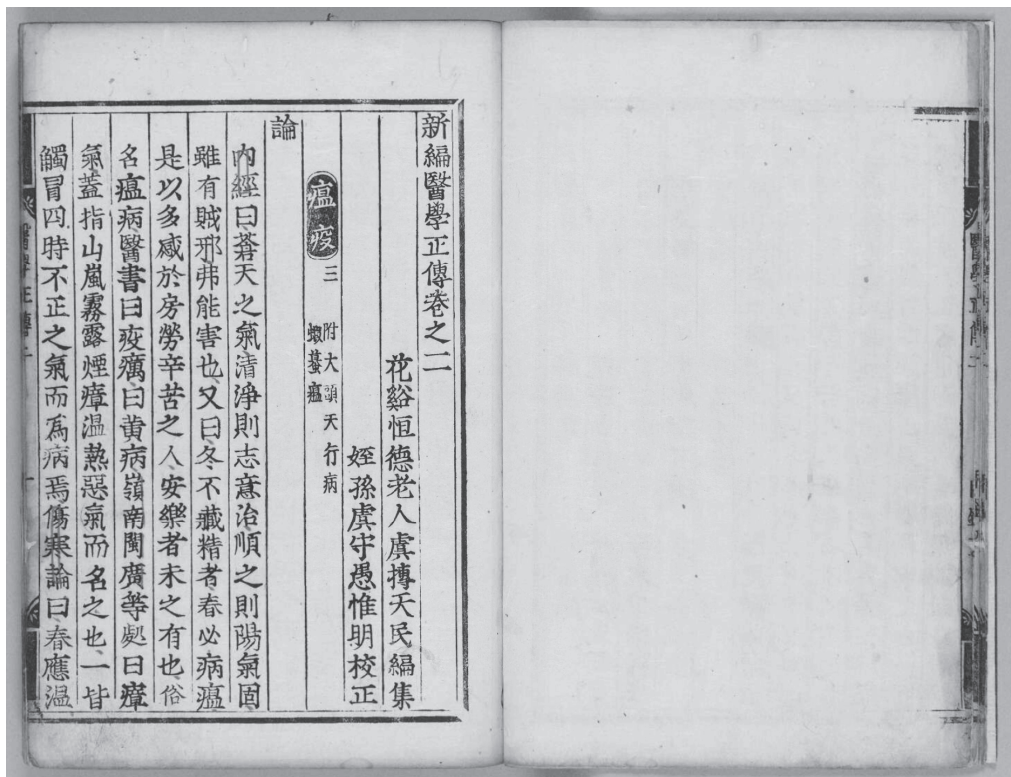 新編醫學正傳卷之二
花谿恒德老人虞摶天民編集
姪孫虞守愚惟明校正
瘟疫三
附大頭天行病
蝦蟇瘟
論
內經曰蒼天之氣清淨則志意治順之則陽氣固
雖有賊邪弗能害也又曰冬不藏精者春必病瘟
是以多感於房勞辛苦之人安樂者未之有也俗
名瘟病醫書曰疫癘曰黃病嶺南閩廣等處曰瘴
氣蓋指山嵐霧露煙瘴温熱惡氣而名之也一皆
觸冒四時不正之氣而爲病焉傷寒論曰春應温
醫學正傳二